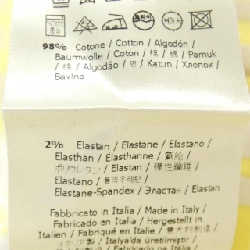 98% Cotone / Cotton / Algodón /
Baumwolle / Coton / 棉 / 棉 / Pamuk
/ 綿 / Algodão / 면 / Хлопок /
2% Elastan / Elastane / Elastano /
Elasthan / Elasthanne /
ポリウレタン / Elastan / 彈性纖維 /
Elastano /
Elastane-Spandex / Эластан / Elastan
Fabbricato in Italia / Made in Italy /
Fabricado en Italia / Hergestellt in
Italien / Fabriqué en Italie /
İtalya'da üretilmiştir
Fabricado na Itália /